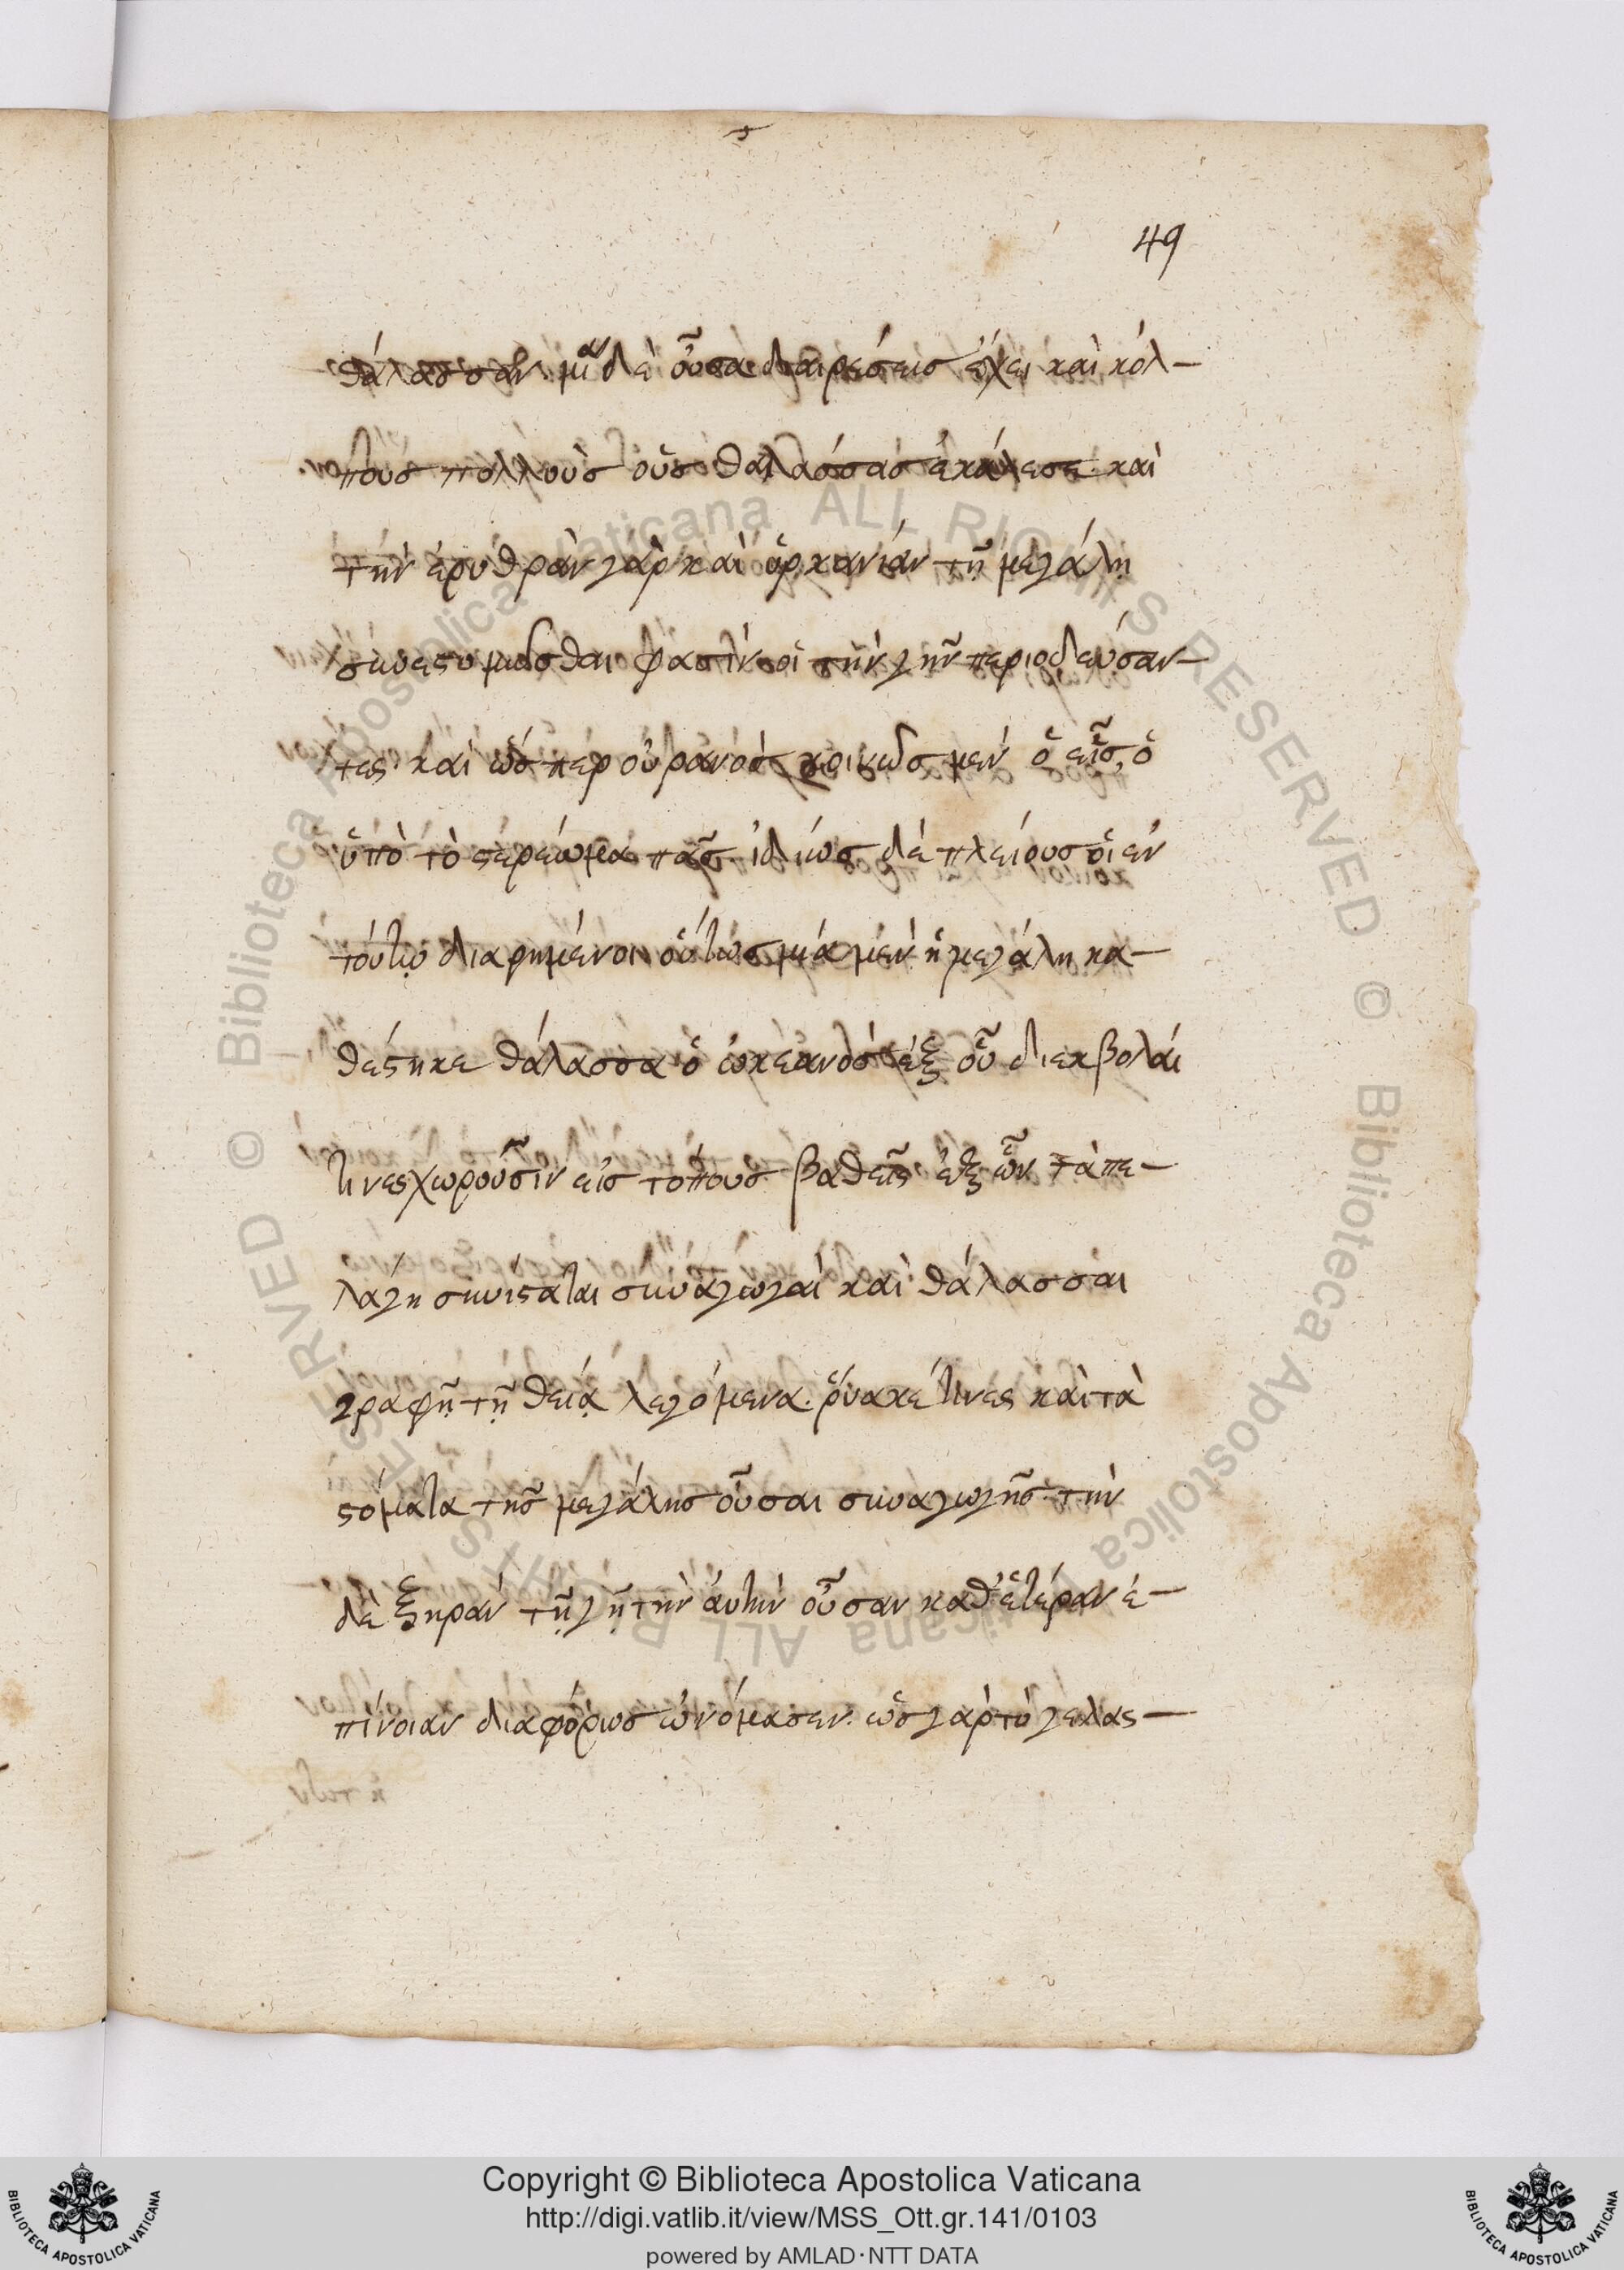 49
θάλασσαν. μία δὲ οὖσα διαιρέσεις ἔχει καὶ κόλ-
πους πολλοὺς οὓς θαλάσσας ἐκάλεσε. καὶ
τὴν ἐρυθρὰν γὰρ καὶ ὑρκανίαν τῇ μεγάλῃ
συνεστομῶσθαι φασὶν οἱ τὴν γῆν περιοδεύσαν-
τες. καὶ ὥσπερ οὐρανὸς κοινῶς μὲν ὁ εἷς, ὁ
ὑπὸ τὸ στερέωμα πᾶς. ἰδίως δὲ πλείους οἱ ἐν
τούτῳ διαρημένοι οὕτως μία μὲν ἡ μεγάλη κα-
θέστηκε θάλασσα ὁ ὠκεανὸς ἐξ οὗ διεκβολάι
τινες χωροῦσιν εἰς τόπους βαθεῖς ἐξ ὧν τὰ πε-
λάγη συνίσταται συναγωγαὶ καὶ θάλασσαι
γραφῇ τῇ θείᾳ λεγόμενα. ῥύακέ τινες καὶ τὰ
στόματα τῆς μεγάλης οὖσαι συναγωγῆς. τὴν
δὲ ξηρὰν τῇ γῇ τὴν ἀυτὴν οὖσαν καθ' ἑτέραν ἐ-
πίνοιαν διαφόρως ὠνόμασεν. ὡς γὰρ τὸ γελαστ-
Copyright © Biblioteca Apostolica Vaticana
http://digi.vatlib.it/view/MSS_Ott.gr.141/0103
powered by AMLAD·NTT DATA
BIBLIOTECA APOSTOLICA VATICANA
BIBLIOTECA APOSTOLICA VATICANA
© Biblioteca Apostolica Vaticana ALL RIGHTS RESERVED
© Biblioteca Apostolica Vaticana ALL RIGHTS RESERVED